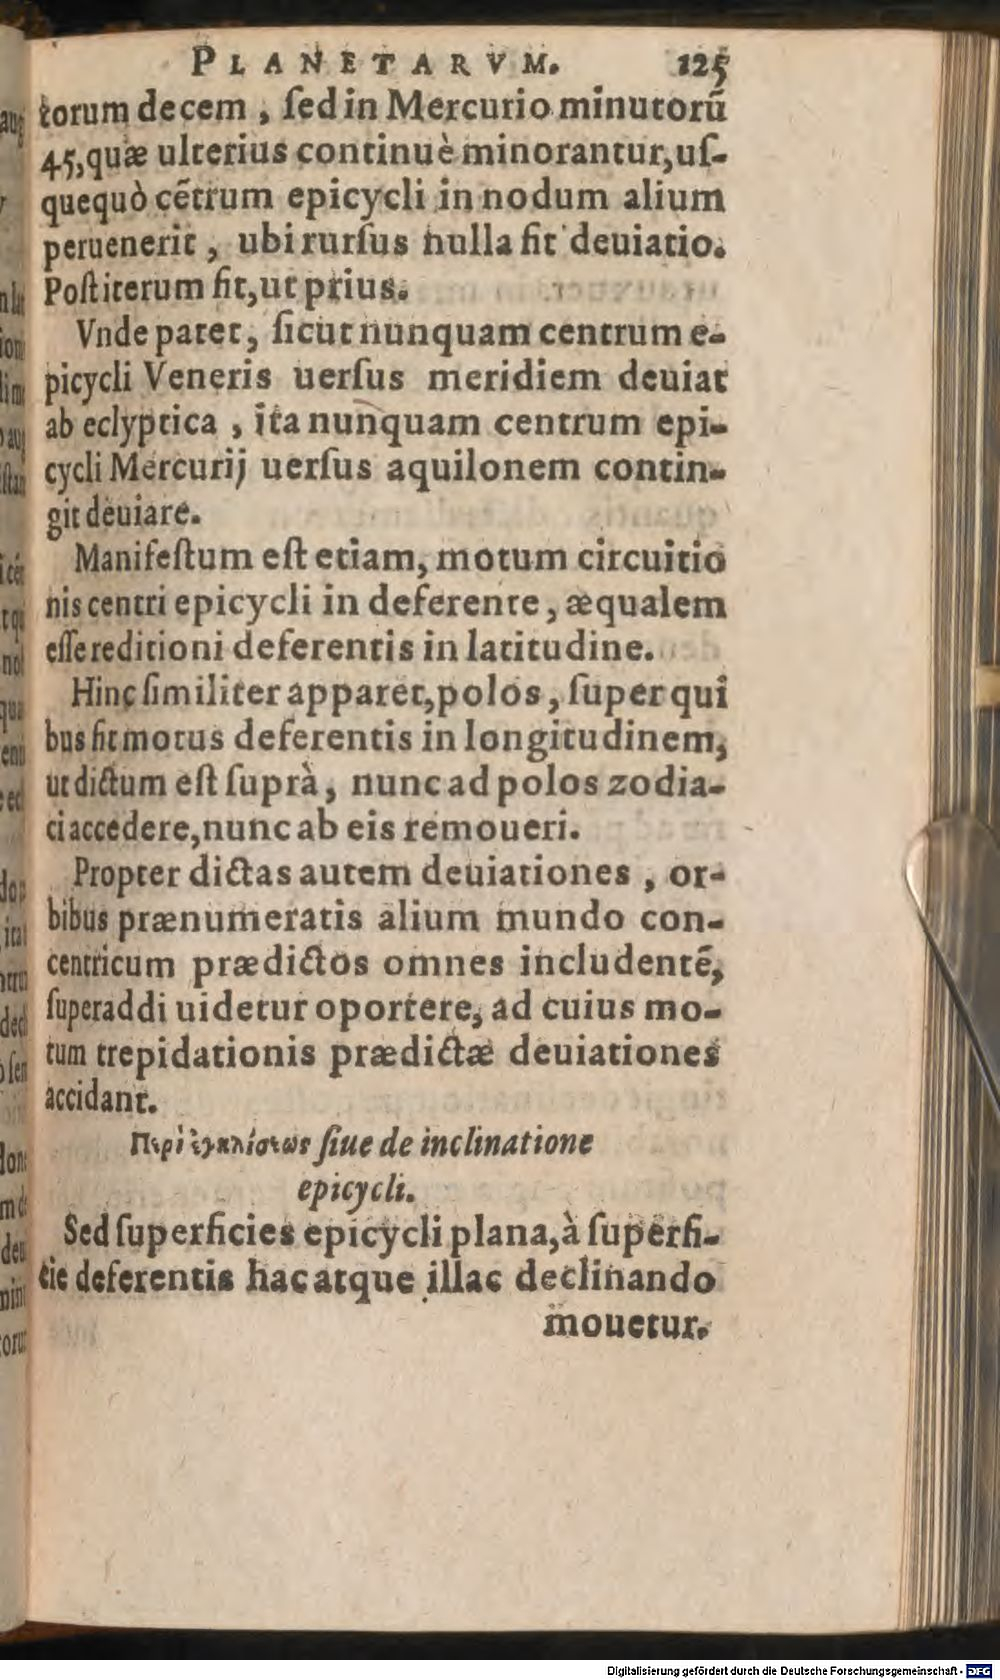 PLANETARVM. 125
torum decem , ſed in Mercurio minutorũ
45, quæ ulterius continuè minorantur, uſ-
quequò cẽtrum epicycli in nodum alium
peruenerit , ubi rurſus nulla fit deuiatio.
Poſt iterum fit, ut prius.
Vnde patet, ſicut nunquam centrum e-
picycli Veneris uerſus meridiem deuiat
ab eclyptica , ita nunquam centrum epi-
cycli Mercurij uerſus aquilonem contin-
git deuiare.
Manifeſtum eſt etiam, motum circuitio
nis centri epicycli in deferente , æqualem
eſſe reditioni deferentis in latitudine.
Hinc ſimiliter apparet, polos , ſuper qui
bus fit motus deferentis in longitudinem,
ut dictum eſt ſuprà , nunc ad polos zodia-
ci accedere, nunc ab eis remoueri.
Propter dictas autem deuiationes , or-
bibus prænumeratis alium mundo con-
centricum prædictos omnes includentẽ,
ſuperaddi uidetur oportere, ad cuius mo-
tum trepidationis prædictæ deuiationes
accidant.
Περὶ ἐγκλίσεως ſiue de inclinatione
epicycli.
Sed ſuperficies epicycli plana, à ſuperfi-
cie deferentis hac atque illac declinando
mouetur.
Digitalisierung gefördert durch die Deutsche Forschungsgemeinschaft - DFG